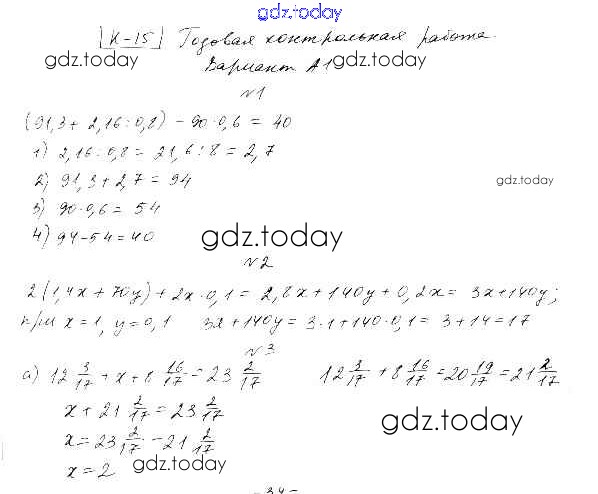 gdz.today
К-15 Годовая контрольная работа.
gdz.today gdz.today
Вариант А1
№1
(91,3 + 2,16 : 0,8) - 90 · 0,6 = 40
1) 2,16 : 0,8 = 21,6 : 8 = 2,7
2) 91,3 + 2,7 = 94
gdz.today
3) 90 · 0,6 = 54
4) 94 - 54 = 40
gdz.today
№2
2(1,4x + 70y) + 2x · 0,1 = 2,8x + 140y + 0,2x = 3x + 140y;
при x = 1, y = 0,1 3x + 140y = 3 · 1 + 140 · 0,1 = 3 + 14 = 17
№3
а) 12 3/17 + x + 8 16/17 = 23 2/17 12 3/17 + 8 16/17 = 20 19/17 = 21 2/17
x + 21 2/17 = 23 2/17
gdz.today
x = 23 2/17 - 21 2/17
x = 2 gdz.today
- 34 -